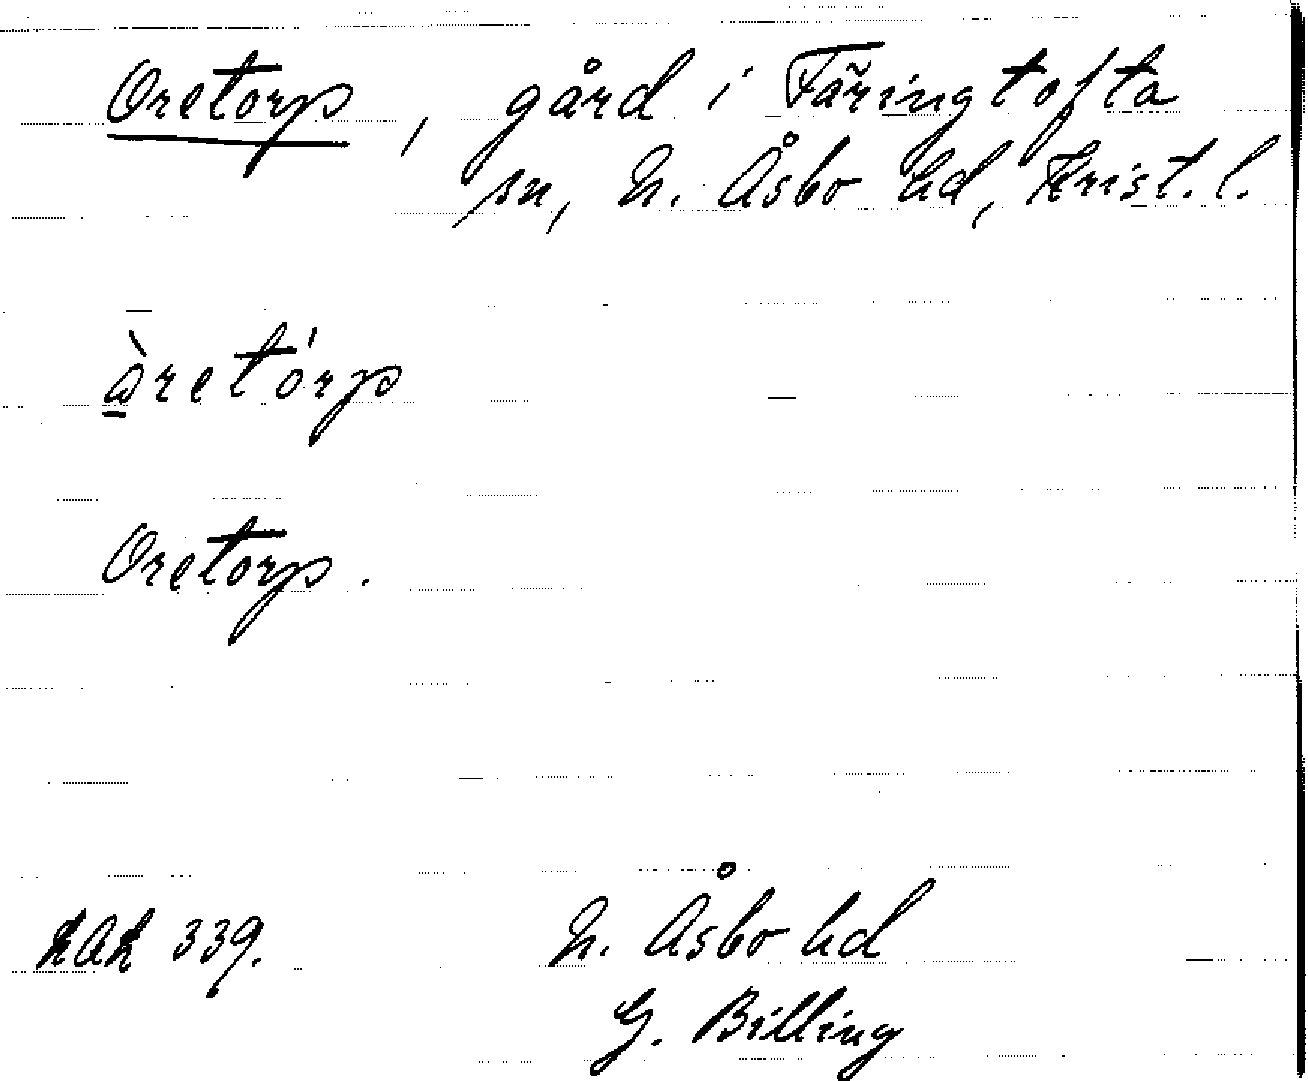 Oretorp, gård i Färingtofta
sn, N. Åsbo hd, Krist. l.
àretórp
Oretorp.
NAH 339.
N. Åsbo hd
G. Billing